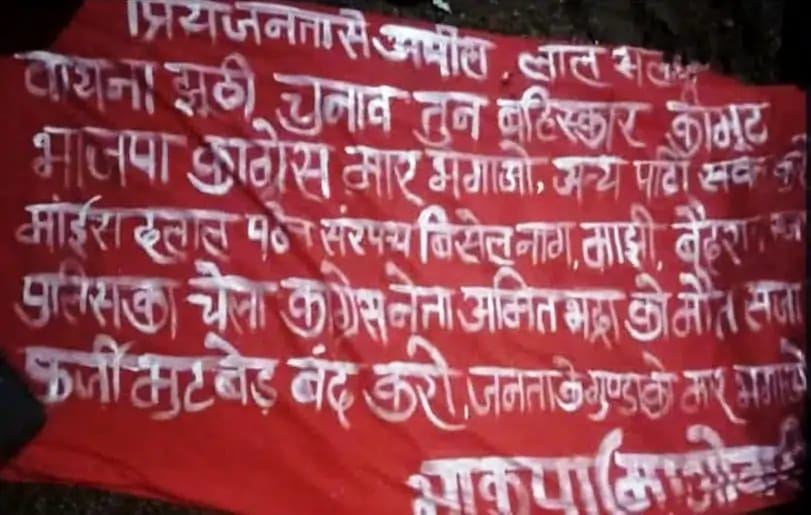 प्रिय जनता से अपील लाल
वायना झुठी चुनाव तुन बहिस्कार कीमुट
भाजपा काग्रेस मार भगाओ, अन्य पार्टी सबक
माईस दलाल सरपंच बिसेल नाग, माझी,
पुलिस का चेला कांग्रेस नेता अमित भद्रा को मौत सजा
फर्जी मुटबेड़ बंद करो, जनता के गुण्डा को मार भगाओ
भाकपा (माओवादी